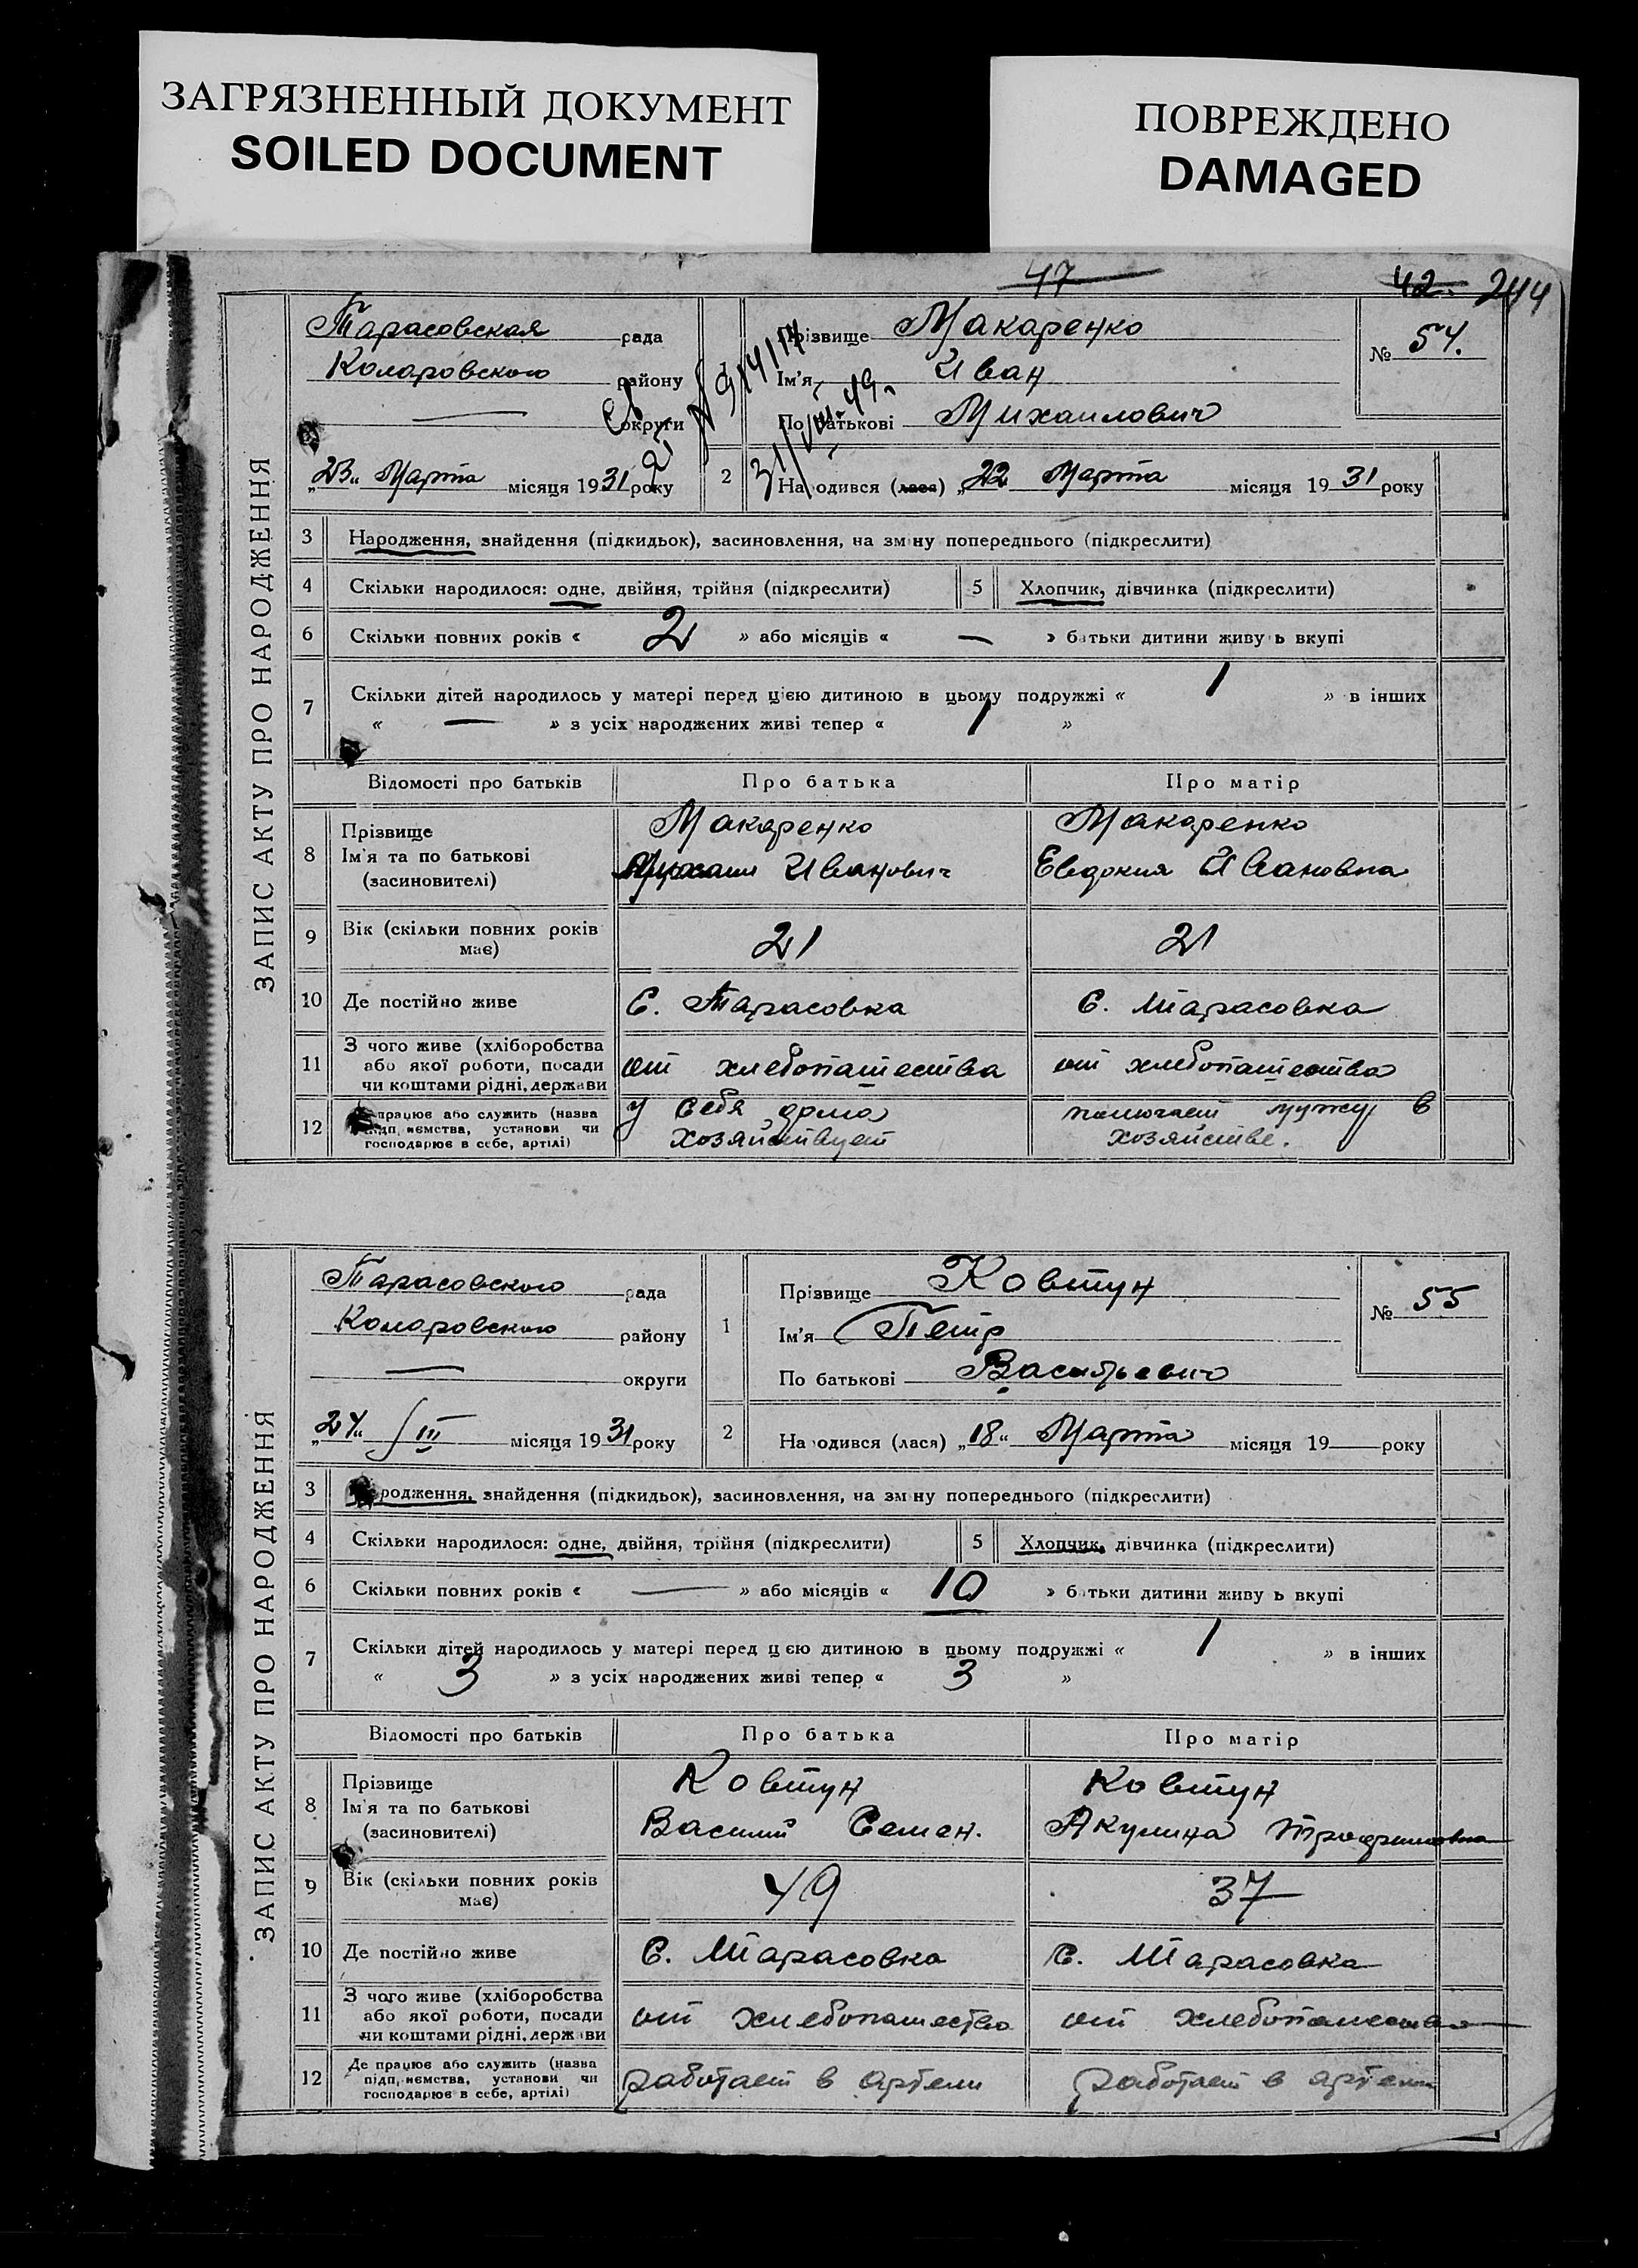 ЗАГРЯЗНЕННЫЙ ДОКУМЕНТ
SOILED DOCUMENT
ПОВРЕЖДЕНО
DAMAGED
47
42. 244
ЗАПИС АКТУ ПРО НАРОДЖЕННЯ
Тарасовская рада
Коларовского району
— округи
„23“ Марта місяця 1931 року
Прізвище Макаренко
Ім'я Иван
По батькові Михаилович
№ 54.
2 Народився (лася) „22 Марта місяця 1931 року
3 Народження, знайдення (підкидьок), засиновлення, на зміну попереднього (підкреслити)
4 Скільки народилося: одне, двійня, трійня (підкреслити) 5 Хлопчик, дівчинка (підкреслити)
6 Скільки повних років « 2 » або місяців « — » батьки дитини живуть вкупі
7 Скільки дітей народилось у матері перед цією дитиною в цьому подружжі « 1 » в інших
« — » з усіх народжених живі тепер « 1 »
Відомості про батьків Про батька Про матір
8 Прізвище Макаренко Макаренко
Ім'я та по батькові Михаил Иванович Евдокия Ивановна
(засиновителі)
9 Вік (скільки повних років має) 21 21
10 Де постійно живе С. Тарасовка С. Тарасовка
11 З чого живе (хліборобства або якої роботи, посади чи коштами рідні, держави от хлебопашества от хлебопашества
12 працює або служить (назва підприємства, установи чи господарює в себе, артілі) у себя дома хозяйствует помогает мужу в хозяйстве.
ЗАПИС АКТУ ПРО НАРОДЖЕННЯ
Тарасовского рада
Коларовского району
— округи
„24“ III місяця 1931 року
1 Прізвище Ковтун
Ім'я Петр
По батькові Васильевич
№ 55
2 Народився (лася) „18“ Марта місяця 19— року
3 Народження, знайдення (підкидьок), засиновлення, на зміну попереднього (підкреслити)
4 Скільки народилося: одне, двійня, трійня (підкреслити) 5 Хлопчик, дівчинка (підкреслити)
6 Скільки повних років « — » або місяців « 10 » батьки дитини живуть вкупі
7 Скільки дітей народилось у матері перед цією дитиною в цьому подружжі « 1 » в інших
« 3 » з усіх народжених живі тепер « 3 »
Відомості про батьків Про батька Про матір
8 Прізвище Ковтун Ковтун
Ім'я та по батькові Василий Семен. Акулина Трофимовна
(засиновителі)
9 Вік (скільки повних років має) 49 37
10 Де постійно живе С. Тарасовка С. Тарасовка
11 З чого живе (хліборобства або якої роботи, посади чи коштами рідні, держави от хлебопашество от хлебопашества
12 Де працює або служить (назва підприємства, установи чи господарює в себе, артілі) работает в артели работает в артели